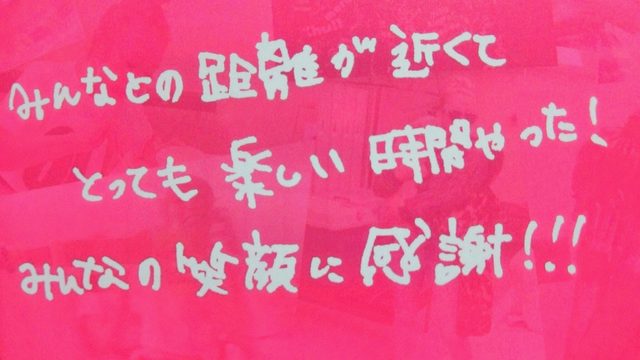 みんなとの距離が近くて
とっても楽しい時間やった!
みんなの笑顔に感謝!!!